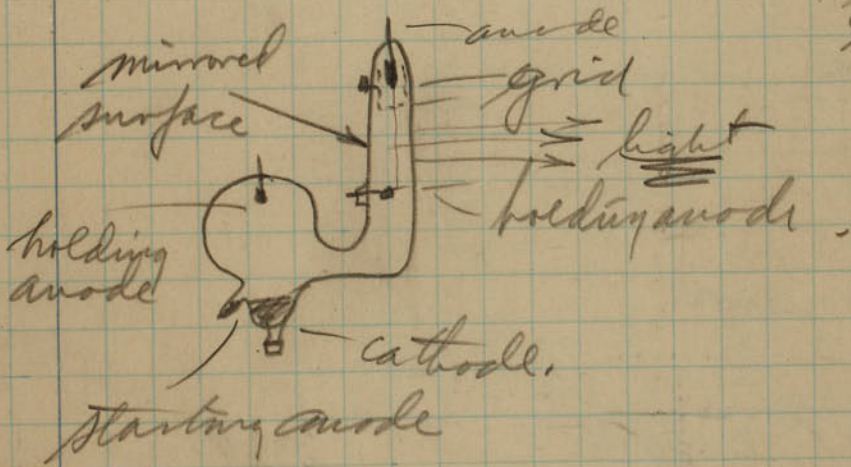 anode
mirrored
surface
grid
light
holding anode.
holding
anode
cathode.
starting anode